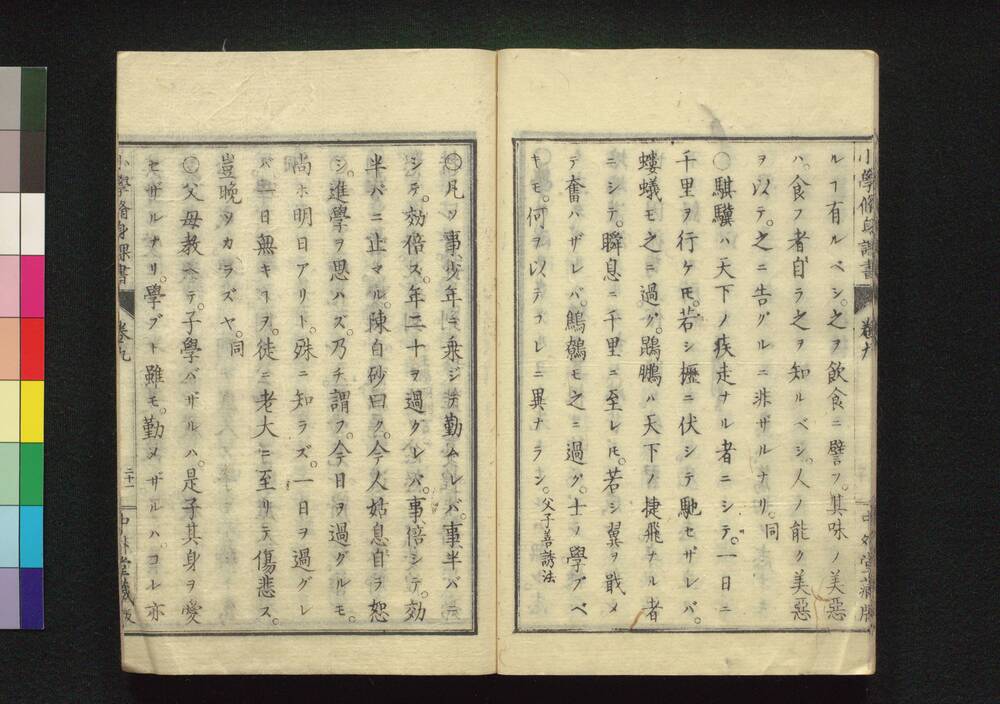 小學脩身課書 卷九 中外堂藏版
ルヿ有ルベシ。之ヲ飮食ニ譬フ。其味ノ美惡
ハ。食フ者自ラ之ヲ知ルベシ。人ノ能ク美惡
ヲ以テ。之ニ告グルニ非ザルナリ。同
〇騏驥ハ天下ノ疾走ナル者ニシテ。一日ニ
千里ヲ行ケ𪜈。若シ櫪ニ伏シテ馳セザレバ。
螻蟻モ之ニ過グ。鵾鵬ハ天下ノ捷飛ナル者
ニシテ。瞬息ニ千里ニ至レ𪜈。若シ翼ヲ戢メ
テ奮ハザレバ。鷦鷯モ之ニ過グ。士ノ學ブベ
キモ。何ヲ以テコレニ異ナラン。父子善誘法
〇凡ソ事少年ニ乘ジテ勤ムレバ。事半バニ
シテ。効倍ス。年二十ヲ過グレバ。事倍シテ。効
半バニ止マル。陳白砂曰ク。今人姑息自ラ恕
シ。進學ヲ思ハズ。乃チ謂フ。今日ヲ過グルモ。
尚ホ明日アリト。殊ニ知ラズ。一日ヲ過グレ
バ。一日無キヿヲ。徒ニ老大ニ至リテ傷悲ス。
豈晚ヲカラズヤ。同
〇父母教ヘテ。子學バザルハ。是子其身ヲ愛
セザルナリ。學ブト雖モ。勤メザルハ。コレ亦
小學脩身課書 卷九 二十一